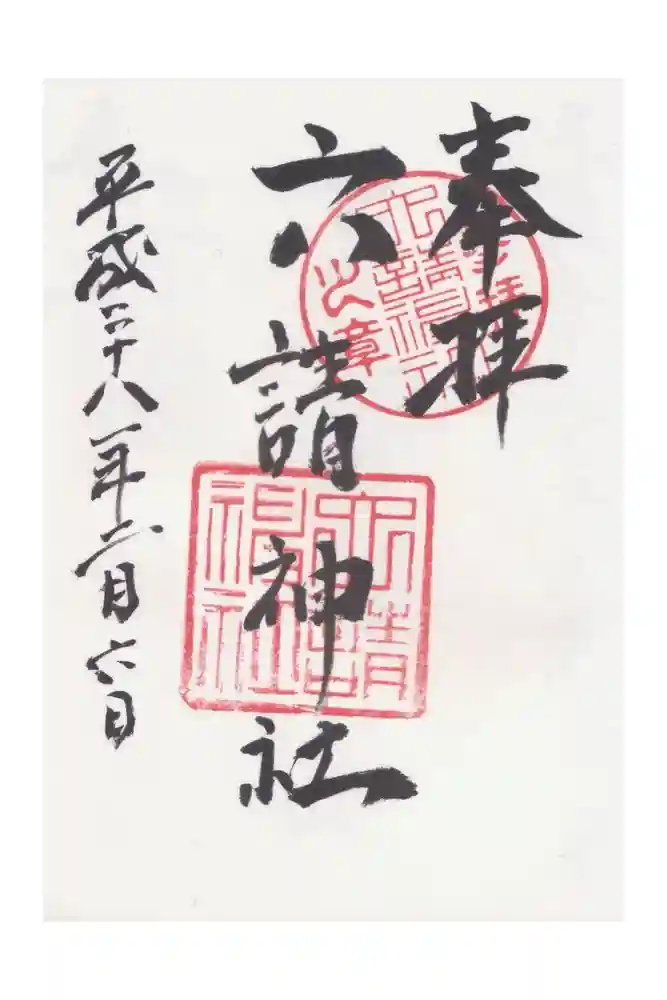 奉拝
六請神社
平成二十八年二月六日
参拝
六請神社
之章
六請
神社